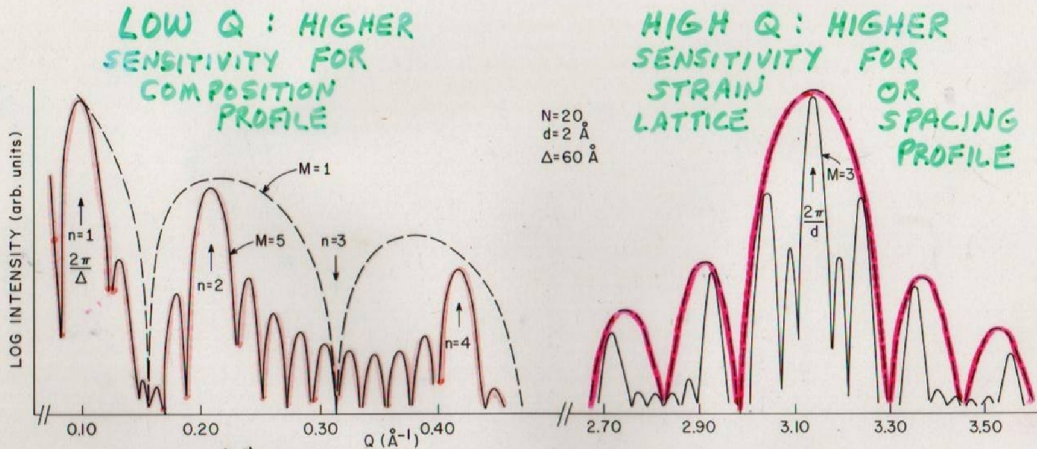 LOW Q : HIGHER
SENSITIVITY FOR
COMPOSITION
PROFILE
HIGH Q : HIGHER
SENSITIVITY FOR
STRAIN OR
LATTICE SPACING
PROFILE
N=20
d=2 Å
Δ=60 Å
LOG INTENSITY (arb. units)
M=1
n=1
2π
Δ
M=5
n=2
n=3
n=4
M=3
2π
d
0.10
0.20
0.30
0.40
Q (Å⁻¹)
2.70
2.90
3.10
3.30
3.50